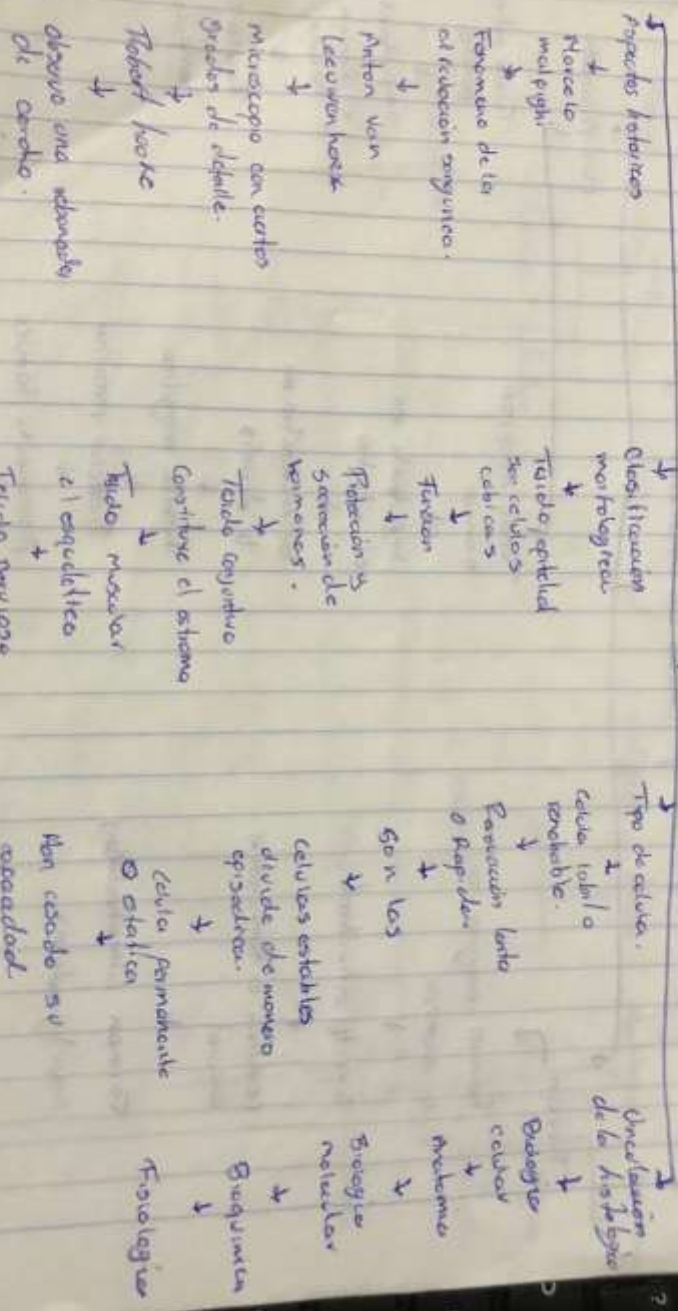 Aspectos historicos
Marcelo
malpighi
Fenomeno de la
circulación sanguinea.
Anton van
Leeuwenhoek
microscopio con ciertos
grados de detalle.
Robert hooke
observo una
de corcho.
Clasificación
morfologica
Tejido epitelial
son celulas
cubicas
Función
Protección y
secreción de
hormonas.
Tejido conjuntivo
Constituye el estroma
Tejido muscular
el esqueletico
Tejido nervioso
Tipo de celula.
Celula labil o
renobable.
Renovación lenta
o Rapida
Son las
celulas estables
divide de manera
episodica.
Celula permanente
o statica
Han cesado su
capacidad
Vinculación
de la histologia
Biologia
celular
Anatomia
Biologia
molecular
Bioquimica
Fisiologia
?